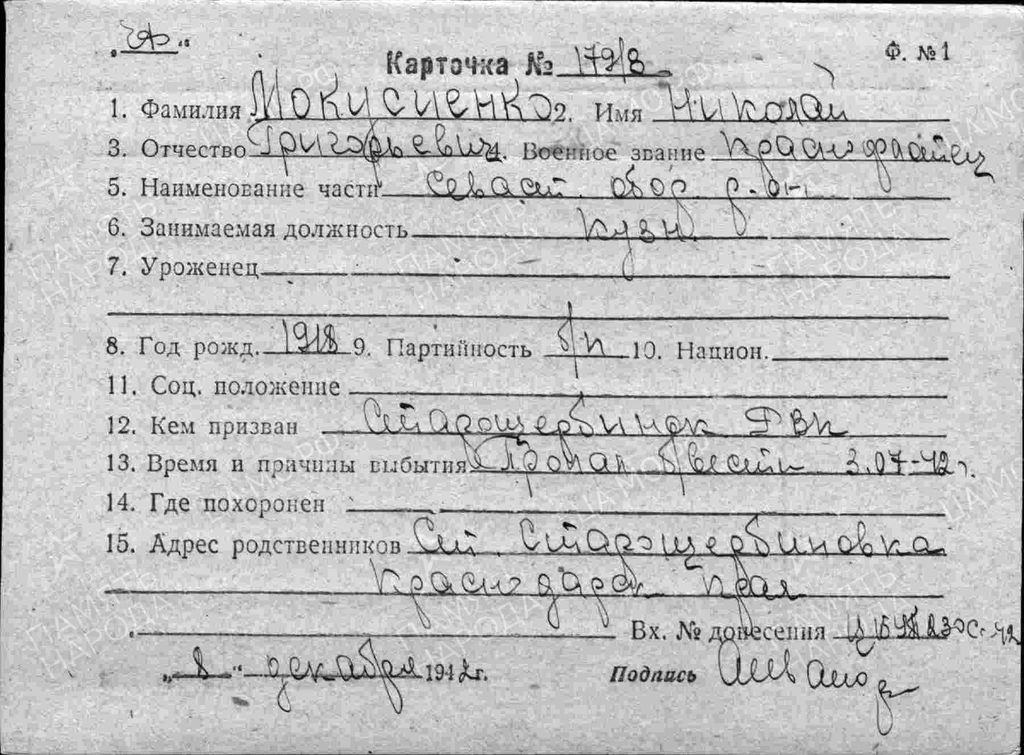 Ф. №1
Карточка № 179/8
1. Фамилия Мокусиенко 2. Имя Николай
3. Отчество Григорьевич 4. Военное звание Краснофлотец
5. Наименование части Севаст. обор. р-он
6. Занимаемая должность Кузн.
7. Уроженец
8. Год рожд. 1918 9. Партийность б/п 10. Национ.
11. Соц. положение
12. Кем призван Старощербиндк РВК
13. Время и причины выбытия Пропал б/вести 3.07-42 г.
14. Где похоронен
15. Адрес родственников Ст. Старощербиновка
Краснодарск края
Вх. № донесения
„8“ декабря 1942г. Подпись